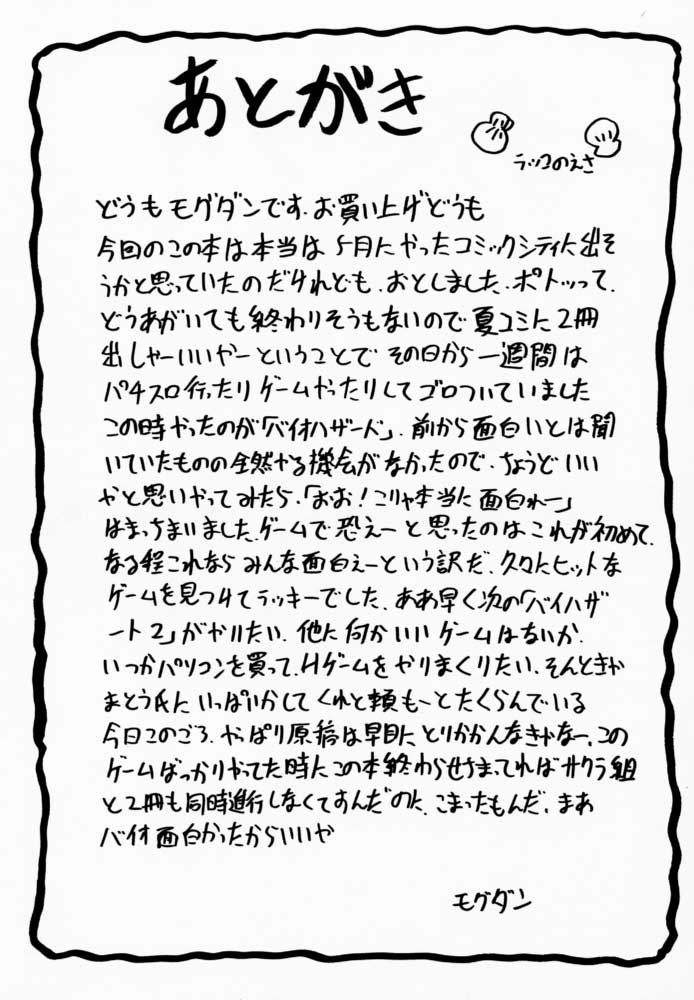 あとがき
ラッコのえさ
どうもモグダンです.お買い上げどうも
今回のこの本は本当は5月にやったコミックシティに出そ
うかと思っていたのだけれども、おとしました、ポトッって.
どうあがいても終わりそうもないので夏コミに2冊
出しゃーいいやーということでその日から一週間は
パチスロ行ったりゲームやったりしてゴロついていました
この時やったのが「バイオハザード」.前から面白いとは聞
いていたものの全然やる機会がなかったので、ちょうどいい
やと思いやってみたら、「おお!こりゃ本当に面白れー」
はまっちまいました.ゲームで恐えーと思ったのはこれが初めて.
なる程これならみんな面白えーという訳だ.久々にヒットな
ゲームを見つけてラッキーでした.ああ早く次の「バイハザ
ード2」がやりたい.他に何かいいゲームはないか.
いつかパソコンを買って、Hゲームをやりまくりたい.そんときゃ
まとう氏にいっぱいかしてくれと頼もーとたくらんでいる
今日このごろ.やっぱり原稿は早目にとりかかんなきゃなー、この
ゲームばっかりやってた時にこの本終わらせちまってればサクラ組
と2冊も同時進行しなくてすんだのに.こまったもんだ.まあ
バイオ面白かったからいいや
モグダン